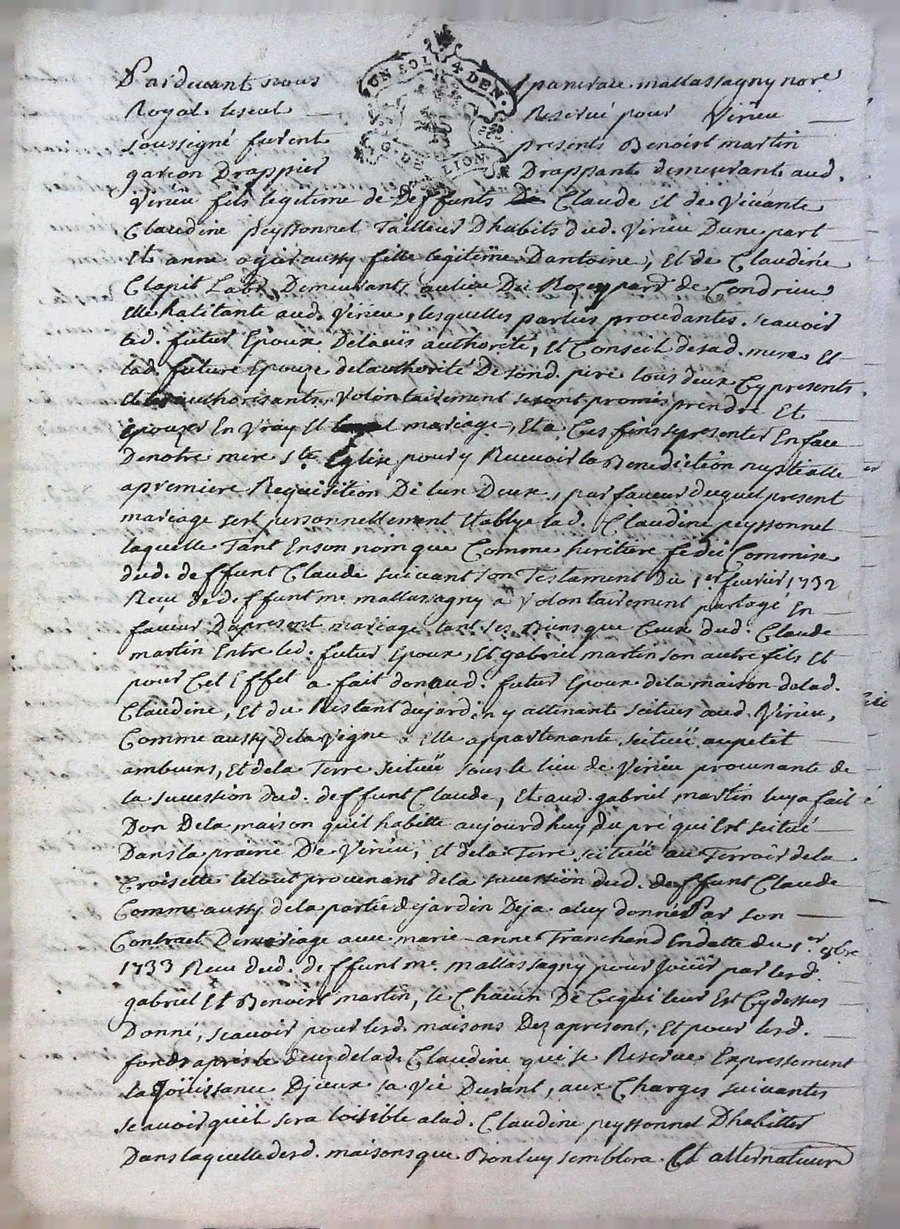 Pardevant nous pancrace mallassagny no.re
Royal le seul Reservé pour Virieu
soussigné furent presents Benoist martin
garcon Drappier Drappant demeurant aud.
Virieu fils legitime de Deffunts Claude et de Vivante
Claudine peyssonnel Tailleur Dhabits dud. Virieu Dune part
Et anne ogier aussy fille legitime Dantoine, Et de Claudine
Clapit Lab. Demeurants au lieu Du Rozey par.d de Condrieu
Elle habitante aud. Virieu, lesquelles parties procedantes scavoir
led. futur Epoux De l'avis authorité, Et Conseil de sad. mere Et
lad. future Epouze de lauthorité De sond. pere tous deux Cy presents
Et les authorisants, Volontairement se sont promis prendre Et
Epouzer En Vray Et mariage, Et a Ces fins se presenter En face
De notre mere s.te Eglise pour y Recevoir la Benediction nuptialle
a premiere Requisition De lun Deux, par faveur duquel present
mariage sest personnellement Etablye lad. Claudine peyssonnel
laquelle Tant En son nom que Comme heritiere fidei Commixe
dud. deffunt Claude suivant son Testament Du 1.er fevrier 1732
Receu de deffunt m.e mallassagny a Volontairement partagé En
faveur Du present mariage tant ses Biens que Ceux dud. Claude
martin Entre led. futur Epoux, Et gabriel martin son autre fils Et
pour Cet Effet a fait don aud. futur Epoux de la maison de lad.
Claudine, Et du Restant du jardin y attenant scitués aud. Virieu,
Comme aussy de la Vigne a Elle appartenante scituée au petit
ambuens, Et de la Terre scituée sous le lieu de Virieu provenante de
la succession dud. deffunt Claude, Et aud. gabriel martin luy a fait
Don De la maison quil habitte aujourdhuy du pré qui Est scitué
Dans la prairie De Virieu, Et de la Terre scituée au Terroir de la
Croisette le tout provenant de la succession dud. deffunt Claude
Comme aussy de la partie de jardin Deja a luy donné Par son
Contract De mariage avec marie anne Tranchand En datte du 1.er 8bre
1733 Receu dud. deffunt m.e mallassagny pour Jouir par lesd.
gabriel Et Benoist martin, le Chacun De Ce qui leur Est Cy dessus
Donné, scavoir pour lesd. maisons Dez apresent, Et pour lesd.
fonds apres le deces de lad. Claudine qui se Reserve Expressement
la Jouissance Djceux sa Vie Durant, aux Charges suivantes
scavoir quil sera loisible a lad. Claudine peyssonnel Dhabitter
Dans laquelle desd. maisons que Bon luy semblera Et alternativem.
UN SOL 4 DEN.
G. DE LION